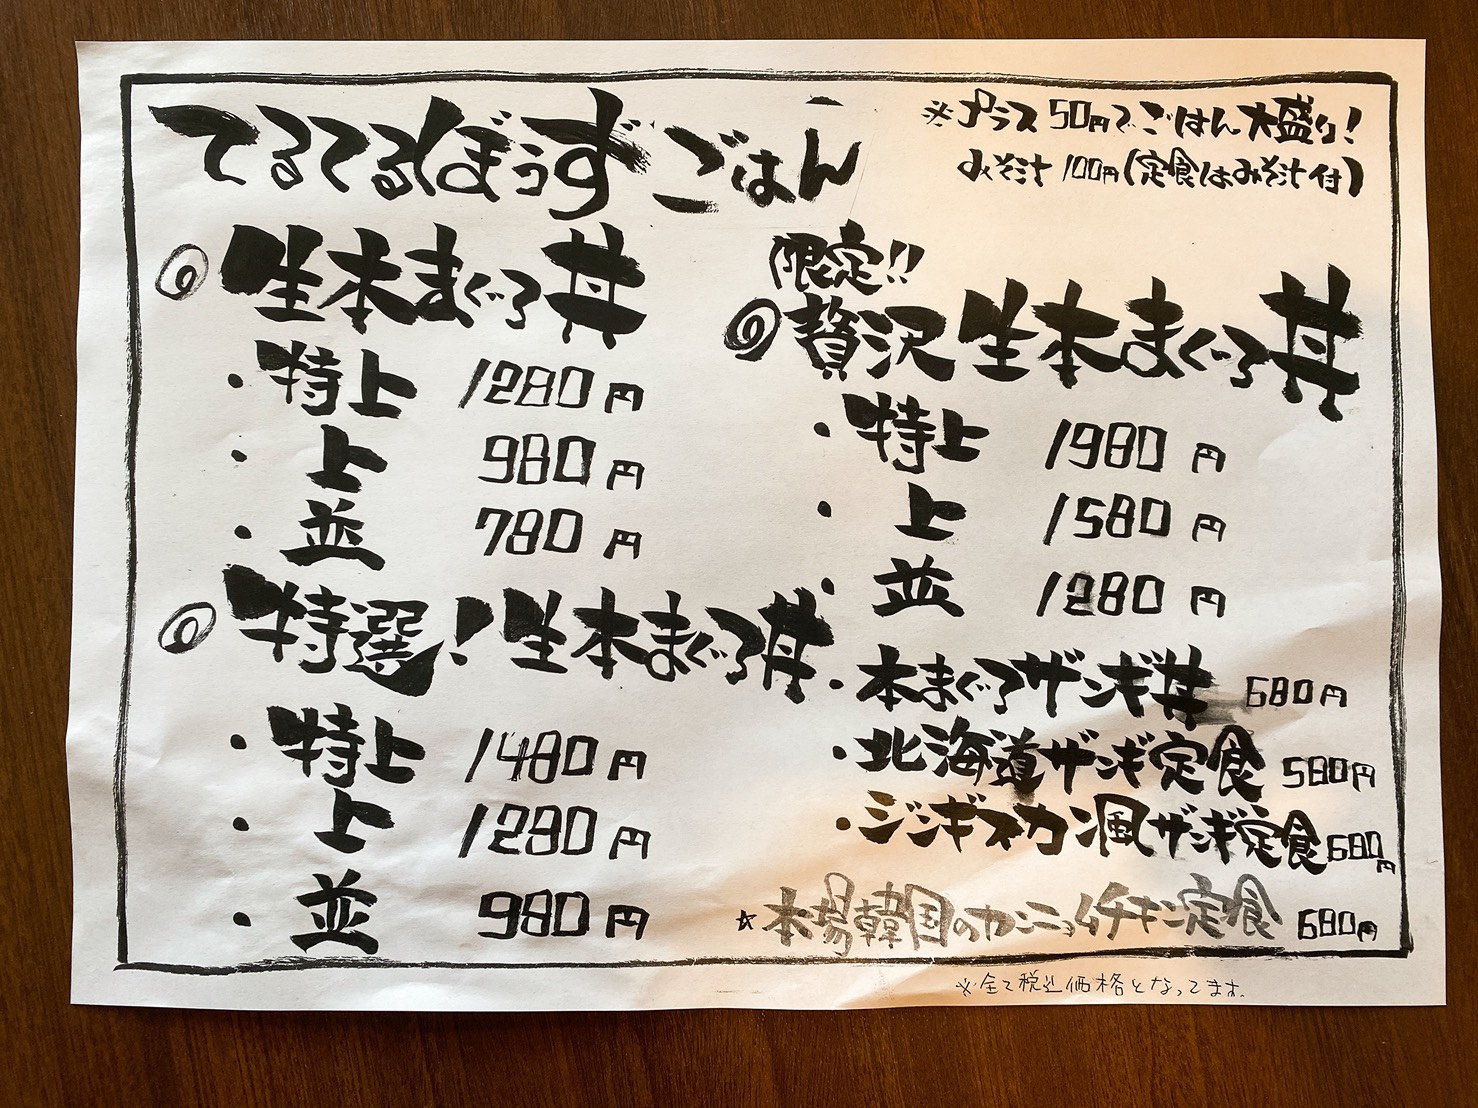 てるてるぼうずごはん
※プラス50円でごはん大盛り!
みそ汁100円(定食はみそ汁付)
◎生本まぐろ丼
・特上 1280円
・上 980円
・並 780円
◎特選!生本まぐろ丼
・特上 1480円
・上 1280円
・並 980円
限定!!
◎贅沢生本まぐろ丼
・特上 1980円
・上 1580円
・並 1280円
・本まぐろザンギ丼 680円
・北海道ザンギ定食 580円
・ジンギスカン風ザンギ定食 680円
☆本場韓国のヤンニョムチキン定食 680円
※全て税込価格となってます。